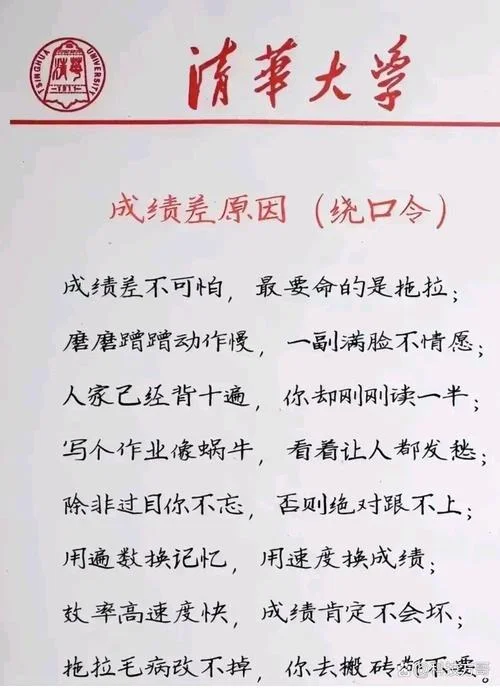 清華大学
TSINGHUA UNIVERSITY
清華
1911
成绩差原因（绕口令）
成绩差不可怕，最要命的是拖拉；
磨磨蹭蹭动作慢，一副满脸不情愿；
人家已经背十遍，你却刚刚读一半；
写个作业像蜗牛，看着让人都发愁；
除非过目你不忘，否则绝对跟不上；
用遍数换记忆，用速度换成绩；
效率高速度快，成绩肯定不会坏；
拖拉毛病改不掉，你去搬砖都不要。